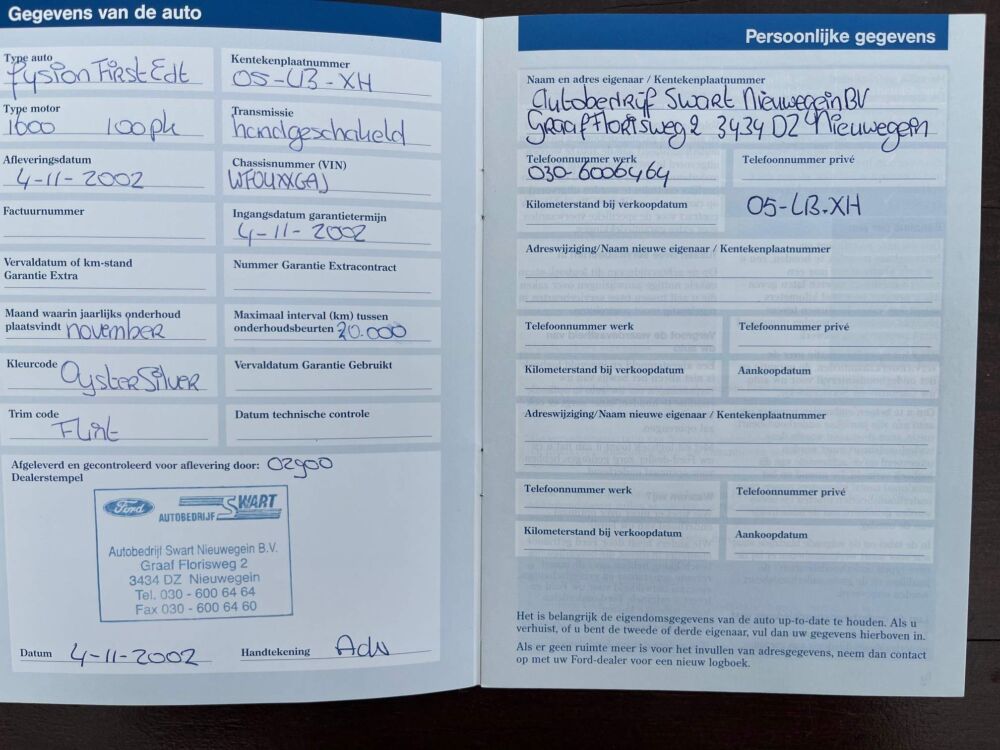 Gegevens van de auto
Type auto
fusion First Edt
Kentekenplaatnummer
05-LB-XH
Type motor
1600 100pk
Transmissie
handgeschakeld
Afleveringsdatum
4-11-2002
Chassisnummer (VIN)
WFOUXXGAJ
Factuurnummer
Ingangsdatum garantietermijn
4-11-2002
Vervaldatum of km-stand
Garantie Extra
Nummer Garantie Extracontract
Maand waarin jaarlijks onderhoud
plaatsvindt november
Maximaal interval (km) tussen
onderhoudsbeurten 20.000
Kleurcode
Oyster Silver
Vervaldatum Garantie Gebruikt
Trim code
Flint
Datum technische controle
Afgeleverd en gecontroleerd voor aflevering door: 02900
Dealerstempel
Ford SWART
AUTOBEDRIJF
Autobedrijf Swart Nieuwegein B.V.
Graaf Florisweg 2
3434 DZ Nieuwegein
Tel. 030 - 600 64 64
Fax 030 - 600 64 60
Datum 4-11-2002 Handtekening
Persoonlijke gegevens
Naam en adres eigenaar / Kentekenplaatnummer
Autobedrijf Swart Nieuwegein BV
Graaf Florisweg 2 3434 DZ Nieuwegein
Telefoonnummer werk
030-6006464
Telefoonnummer privé
Kilometerstand bij verkoopdatum
05-LB-XH
Adreswijziging/Naam nieuwe eigenaar / Kentekenplaatnummer
Telefoonnummer werk
Telefoonnummer privé
Kilometerstand bij verkoopdatum
Aankoopdatum
Adreswijziging/Naam nieuwe eigenaar / Kentekenplaatnummer
Telefoonnummer werk
Telefoonnummer privé
Kilometerstand bij verkoopdatum
Aankoopdatum
Het is belangrijk de eigendomsgegevens van de auto up-to-date te houden. Als u
verhuist, of u bent de tweede of derde eigenaar, vul dan uw gegevens hierboven in.
Als er geen ruimte meer is voor het invullen van adresgegevens, neem dan contact
op met uw Ford-dealer voor een nieuw logboek.